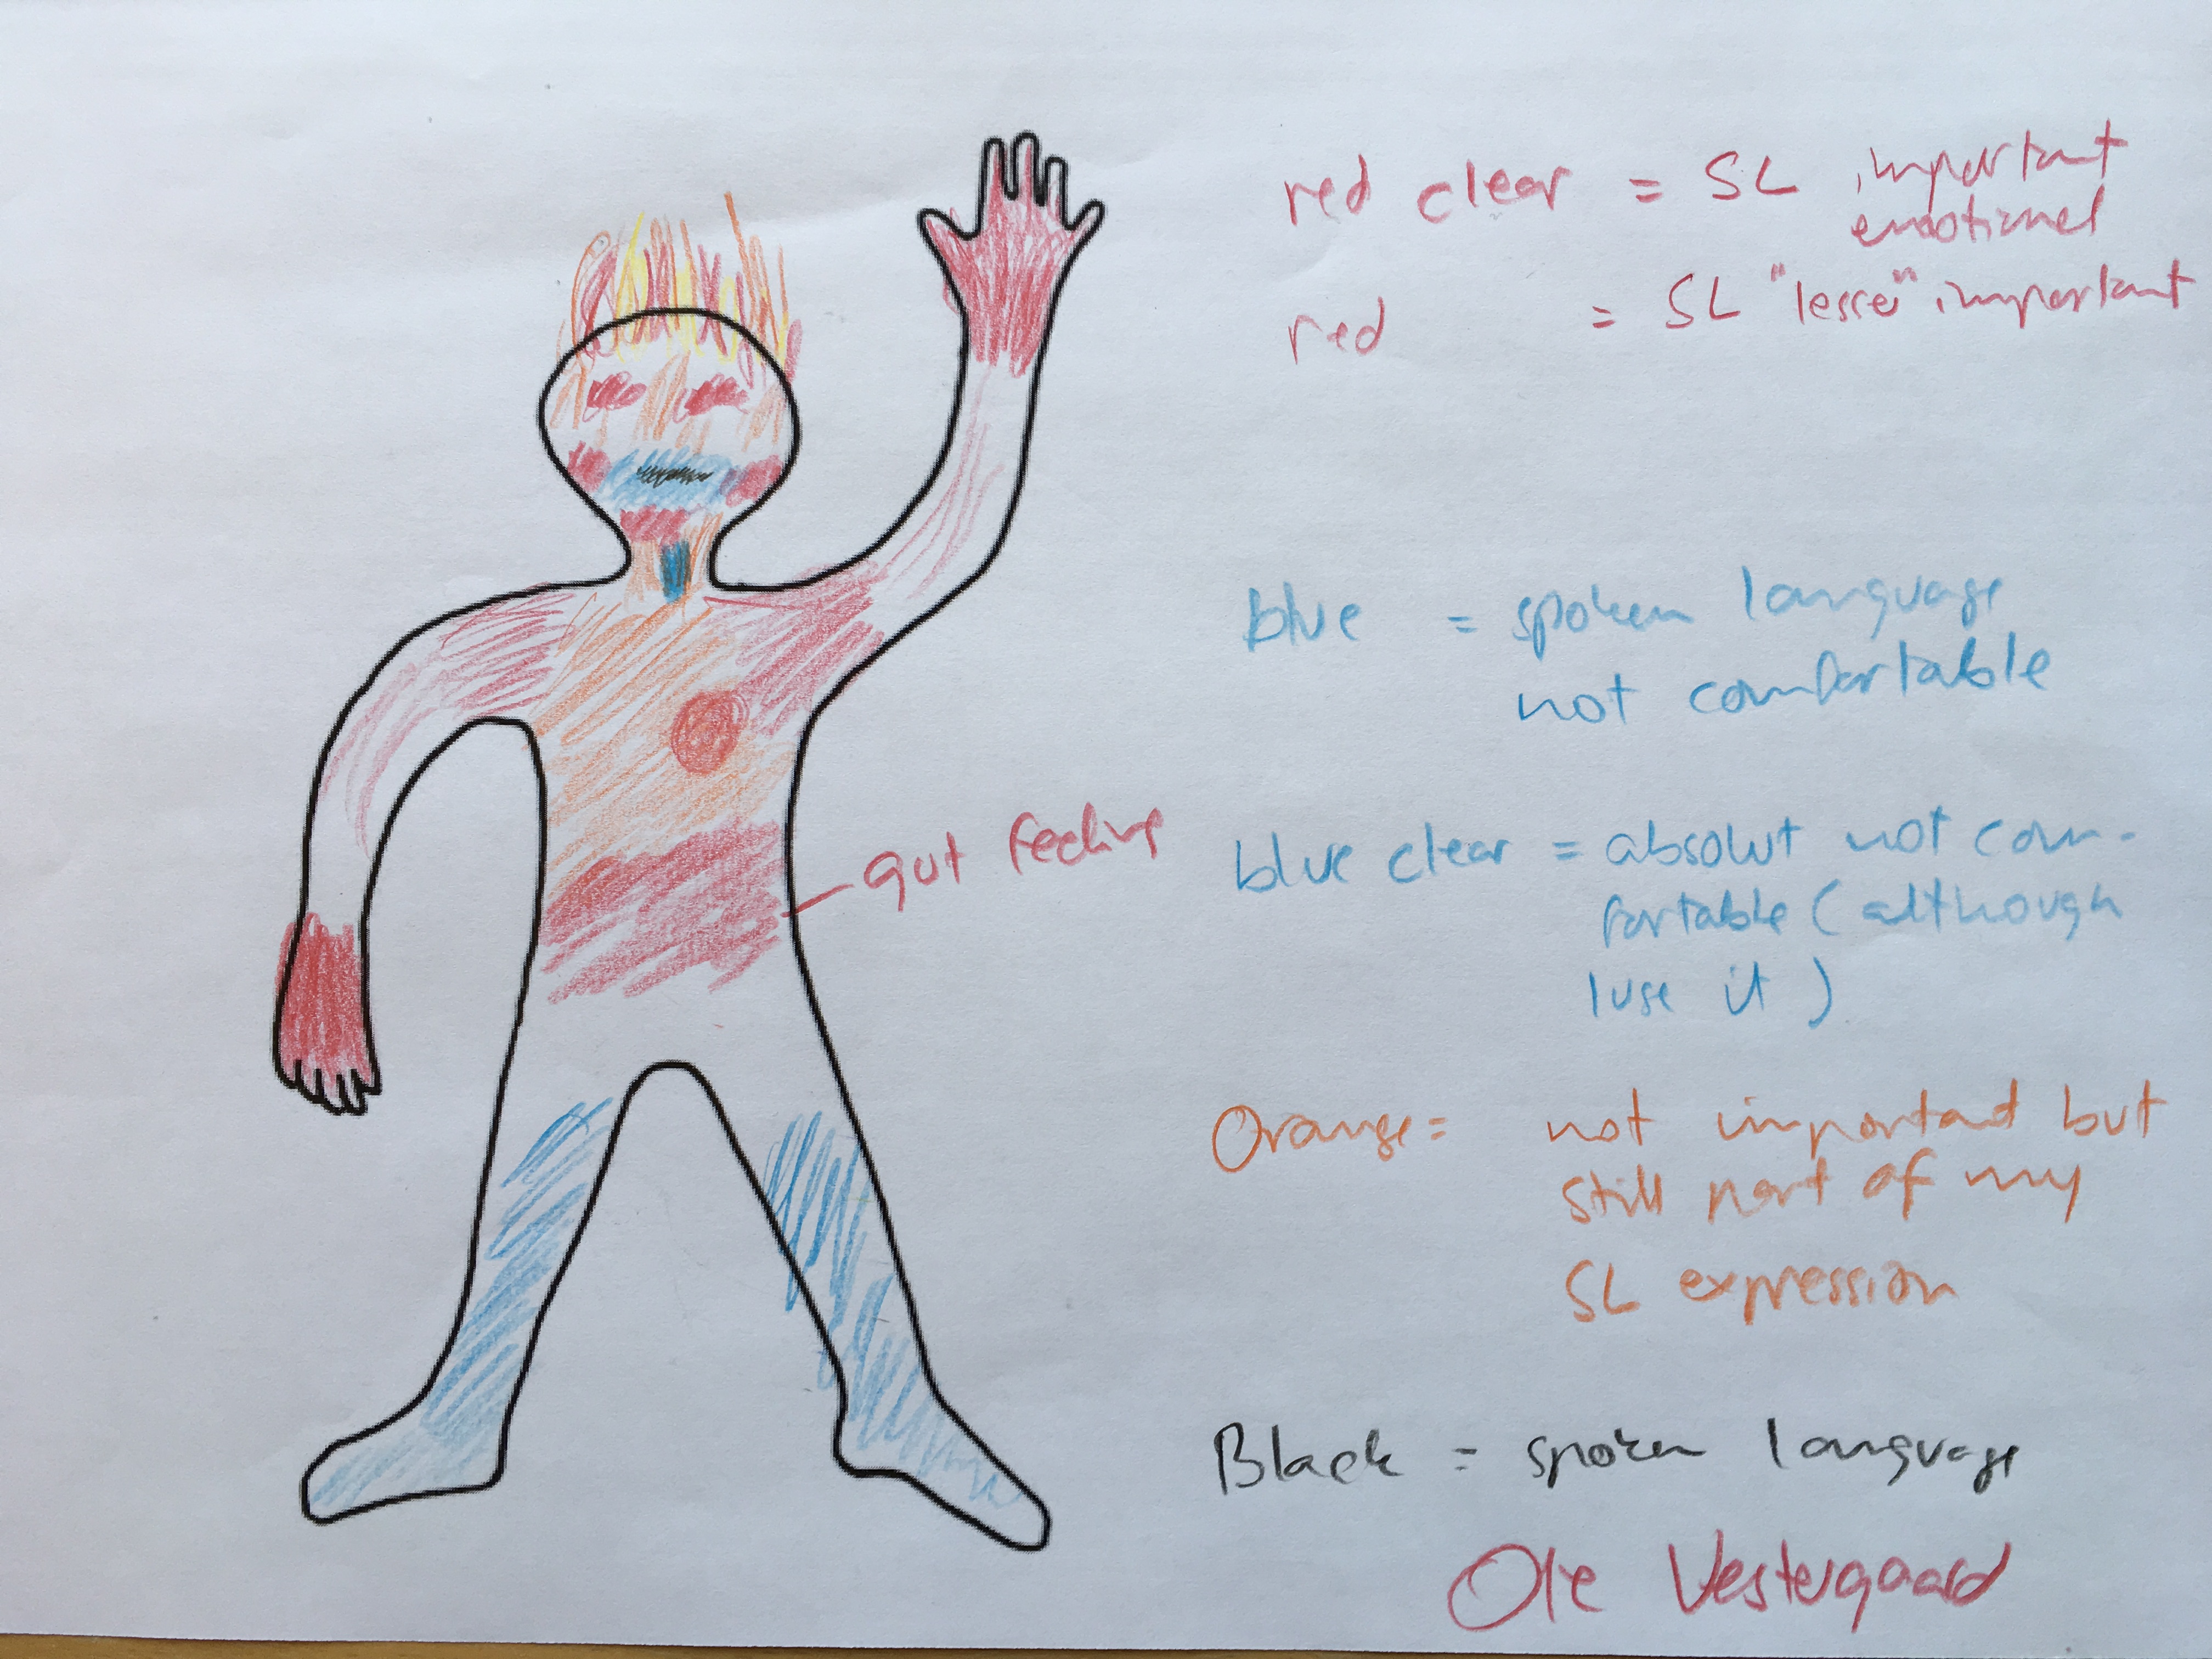 red clear = SL important
emotionel
red = SL "lesser" important
blue = spoken language
not comfortable
gut feeling
blue clear = absolut not com-
fortable (although
I use it)
Orange = not important but
still part of my
SL expression
Black = spoken language
Ole Vestergaard